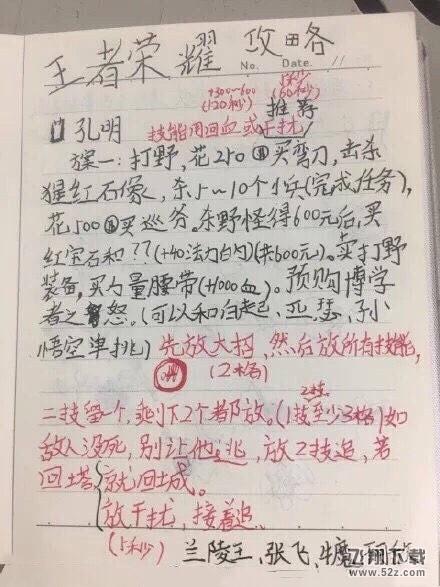 王者荣耀 攻略
No. Date. 11
+300~600 5秒少
(120秒少) (60秒少)
推荐
孔明 技能用回血或干扰
方案一:打野,花250买弯刀,击杀
猩红石像,杀5~10个小兵(完成任务),
花500买巡务。杀野怪得600元后,买
红宝石和??(+40法力白内)(共600元)。卖打野
装备,买力量腰带(+1000血)。预购博学
者之怒。(可以和白起、亚瑟、孙
悟空单挑)先放大招,然后放所有技能,
(2格)
2技
二技留一个,剩下2个都放。(1技至少3格)如
敌人没死,别让他逃,放2技追,若
回塔 就回城。
放干扰,接着追
(5秒少)
兰陵王、张飞、牛魔
飞翔下载
www.52z.com